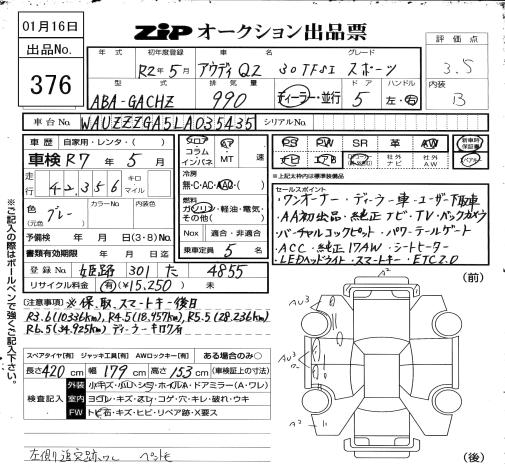 01月16日
ZIP オークション出品票
出品No.
376
年式 初年度登録 車名 グレード
R2年5月 アウディ Q2 30TFSI スポーツ
評価点
3.5
内装
B
型式 排気量 ドア ハンドル
ABA-GACHZ 990 ディーラー・並行 5 左・右
車台No. WAUZZZGA5LA035435 シリアルNo.
車歴 自家用・レンタ・( )
車検 R7年5月
走行 42,356 キロ マイル
色 グレー (元色) カラーNo. 内装色
予備検 年 月 日(3・8)No.
書類有効期限 年 月 日迄
登録No. 姫路 301 た 4855
リサイクル料金 (有)(¥15,250) 未
フロア コラム インパネ AT MT 速
冷房 無・C・AC・AAC・( )
燃料 ガソリン・軽油・電気・その他( )
Nox 適合・非適合
乗車定員 5 名
PS PW SR 革 AW 新車時保証書
ナビ エアB 社外ナビ 社外AW
※上記太枠内は標準装備品
セールスポイント
・ワンオーナー・ディーラー車・ユーザー買取車
・AA初出品・純正ナビ・TV・バックカメラ
・バーチャルコックピット・パワーテールゲート
・ACC・純正17AW・シートヒーター
・LEDヘッドライト・スマートキー・ETC2.0
(注意事項) ※保、取、スマートキー後日
R3.6(10336km)、R4.5(18,957km)、R5.5(28,236km)
R6.5(34,925km) ディーラーキロ有
スペアタイヤ[有] ジャッキ工具[有] AWロックキー[有] ある場合のみ○
長さ420cm 幅179cm 高さ153cm (車検証上の寸法)
検査記入
外装 小キズ・小凹・シラ・ホイルA・ドアミラー(A・ワレ)
室内 ヨゴレ・キズ・スレ・コゲ・穴・キレ・破れ・ウキ
FW トビ石・キズ・ヒビ・リペア跡・X要ス
※ご記入の際はボールペンで強くご記入下さい。
(前)
A²
AU³
AU³
A²
A²
(後)